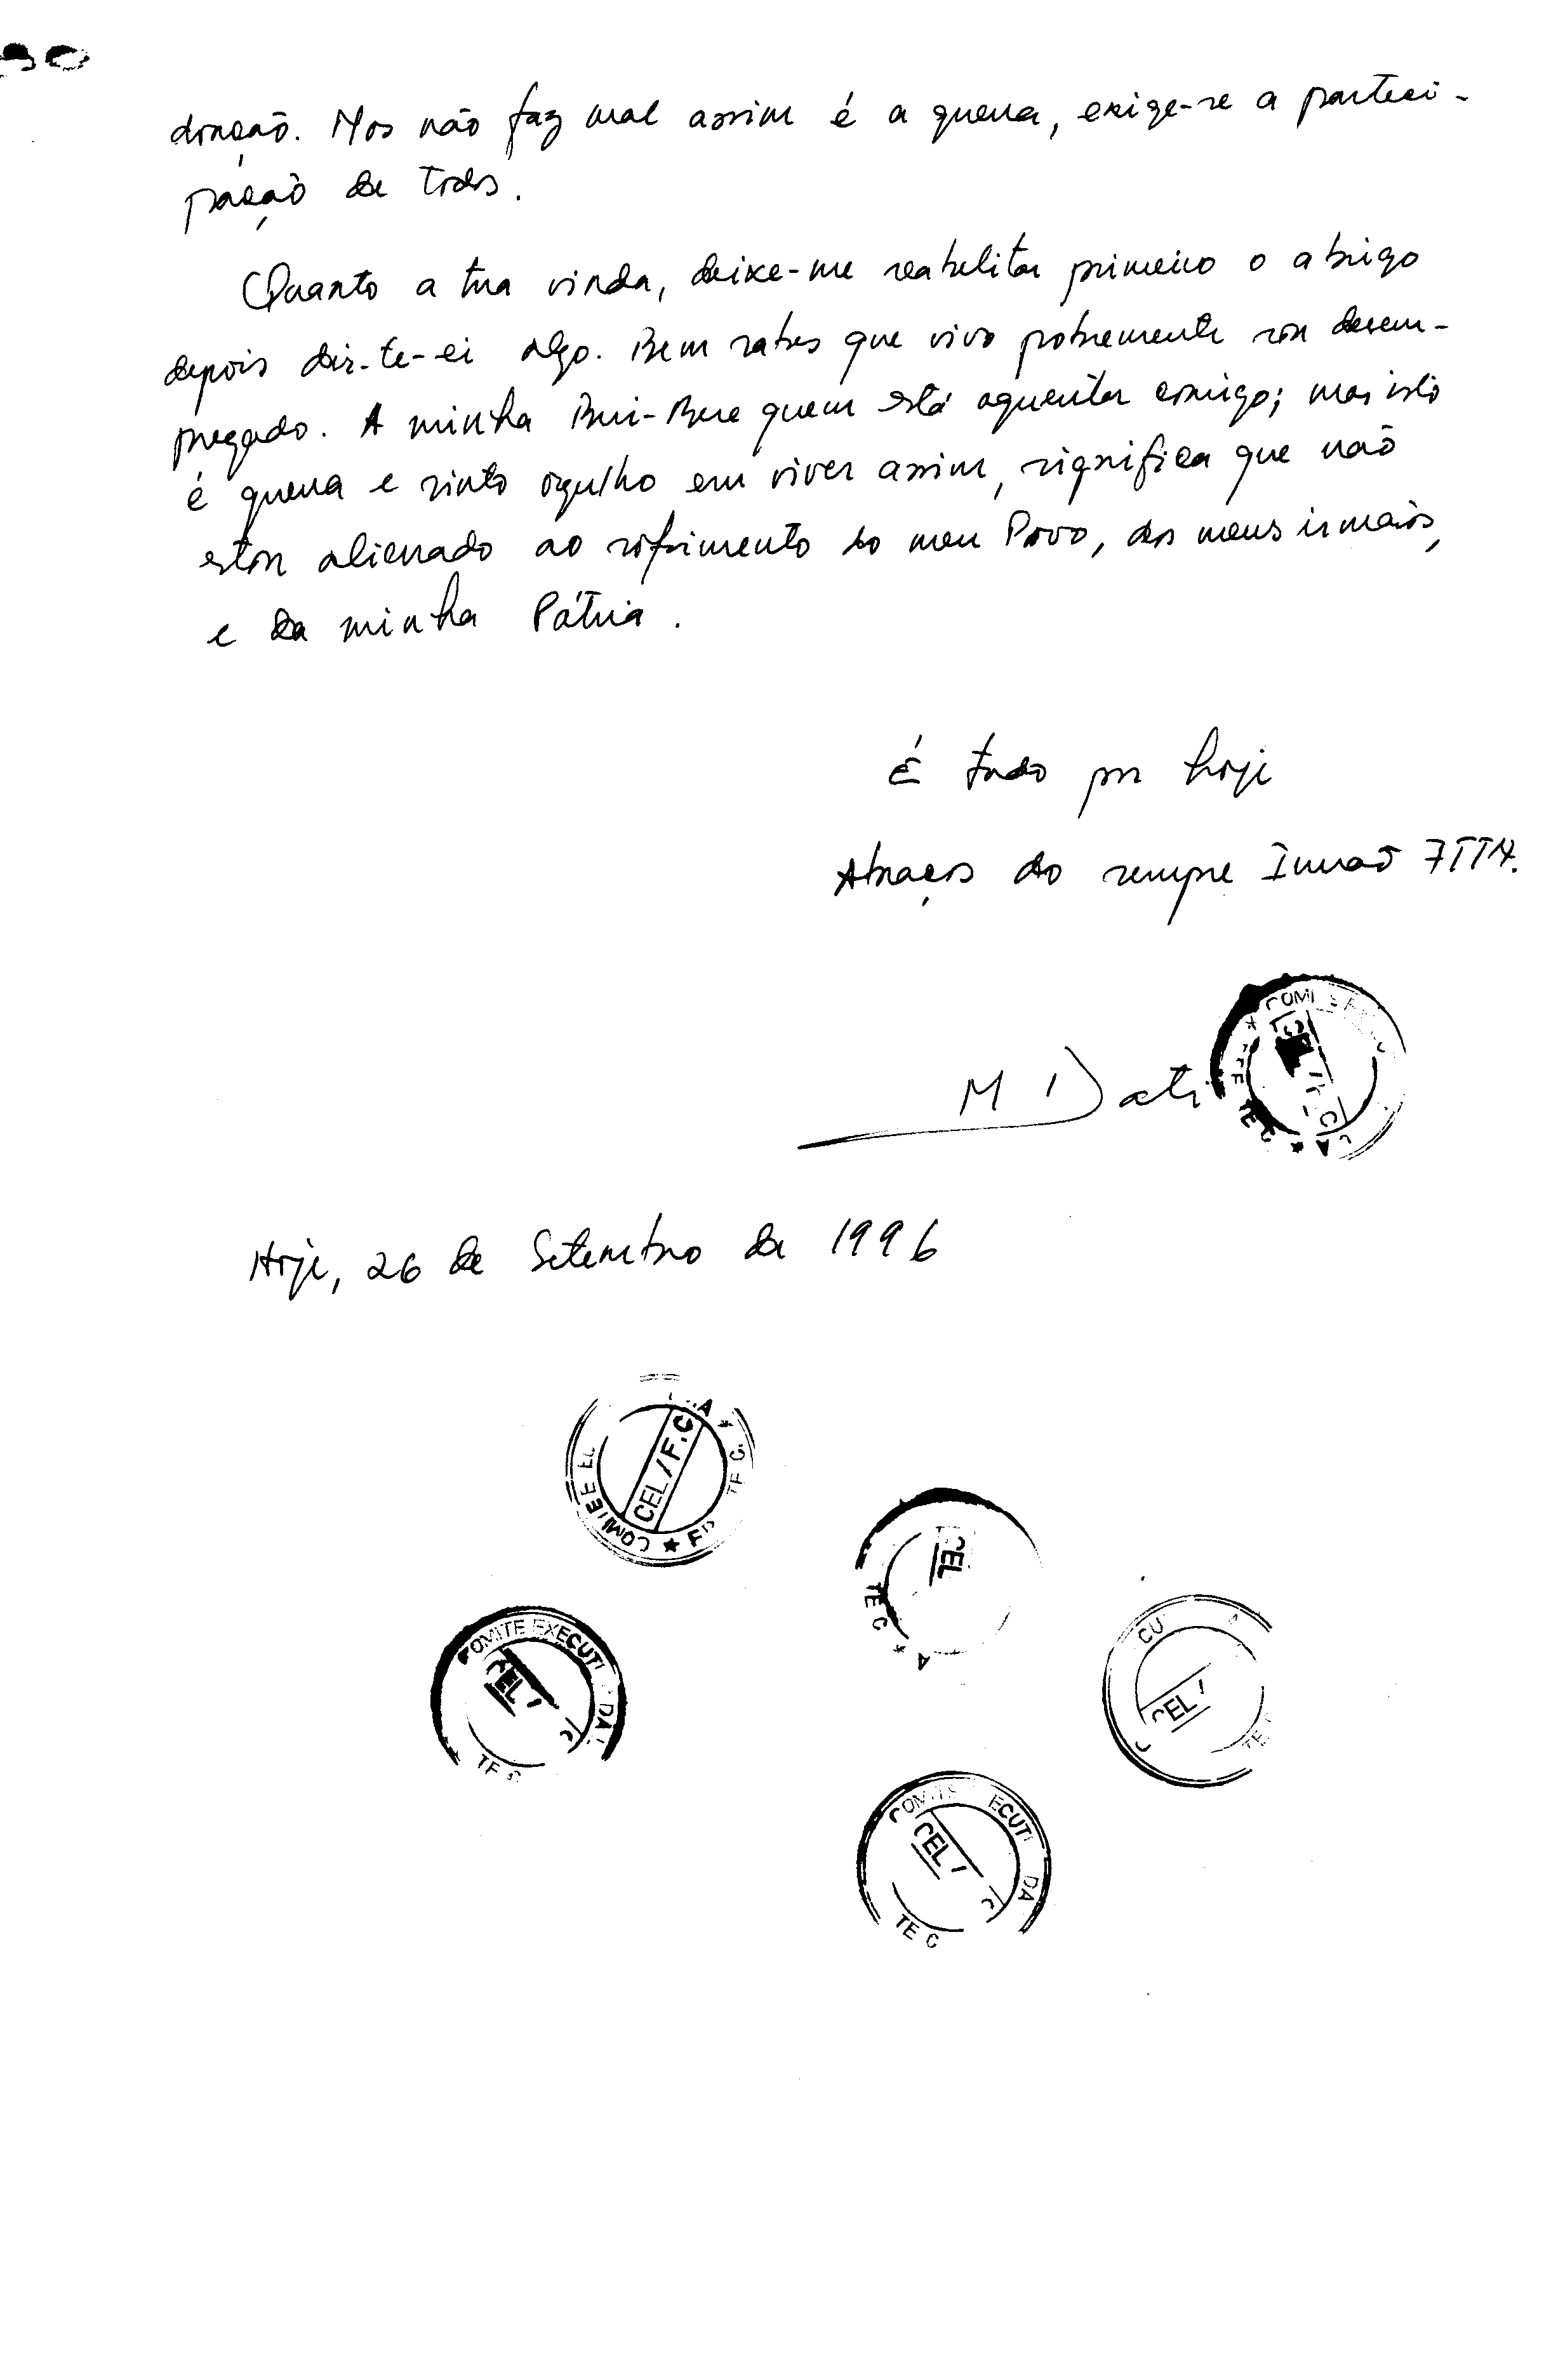 doação. Mas não faz mal assim é a guerra, exige-se a parteci-
pação de todos.
Quanto a tua vinda, deixe-me reabelitar primeiro o abrigo
depois dir-te-ei algo. Bem sabes que vivo pobremente sou desem-
pregado. A minha Bui-Bere quem está aguentar comigo; mas isto
é guerra e sinto orgulho em viver assim, significa que não
estou alienado ao sofrimento do meu Povo, dos meus irmaõs,
e da minha Pátria.
É tudo por hoje
Abraços do sempre Irmaõ
M Dati
COMI
CEL/F.C
TE C
Hoje, 26 de Setembro de 1996
COMITE E
CEL/F.C
TE C
CEL
TE C * A
COMITE EXECUTI DA
CEL/
TE C
CU
CEL/
TE
COMITE ECUTI DA
CEL/
TE C